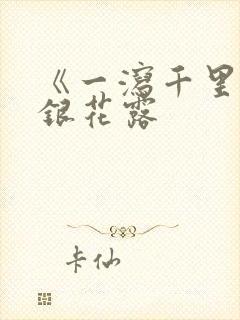 《一瀉千里
銀花露
卡仙